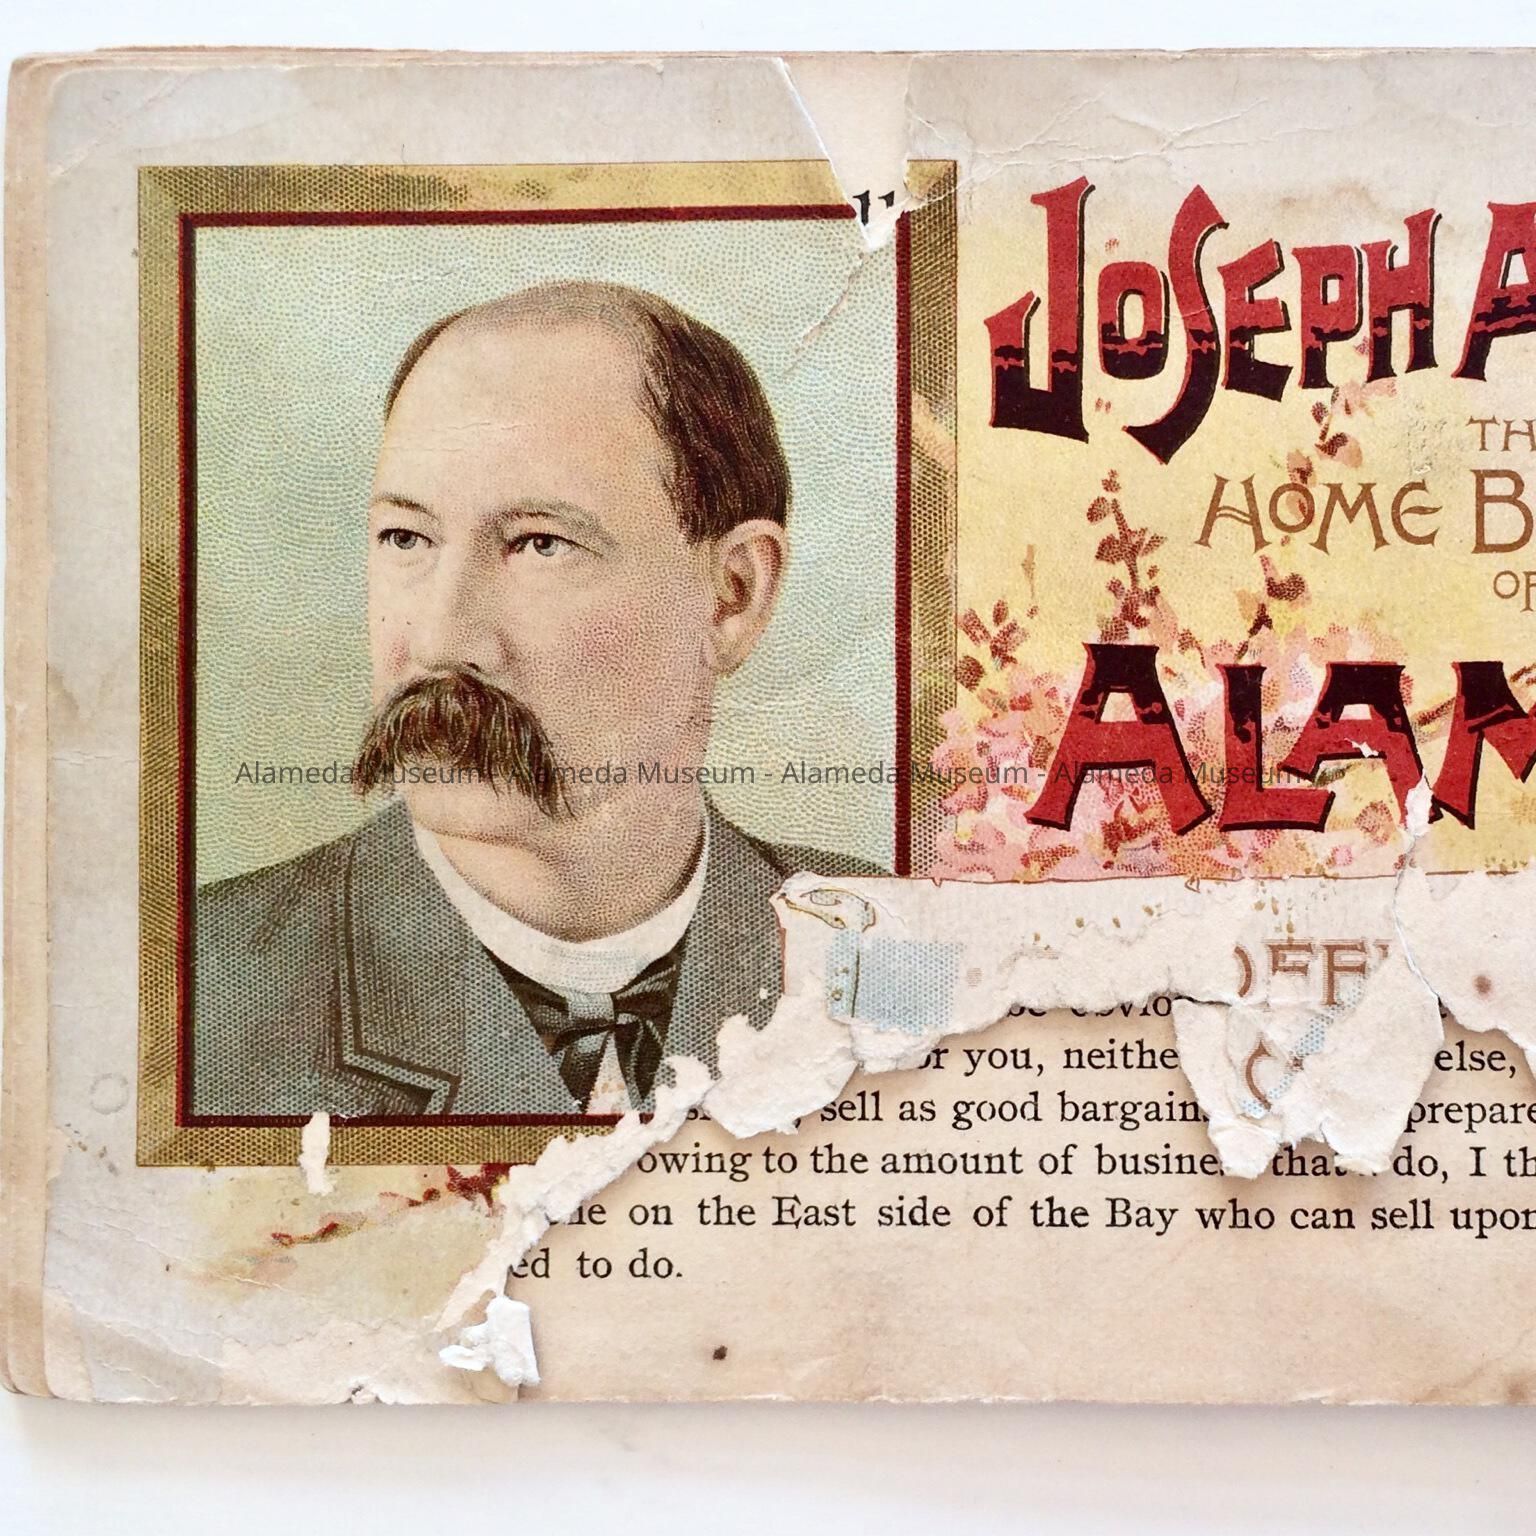 JOSEPH A
TH
HOME B
OF
ALAM
Alameda Museum - Alameda Museum - Alameda Museum - Alameda Museum
OFFI
be obvio
or you, neithe else,
sell as good bargain prepare
owing to the amount of busine that do, I th
on the East side of the Bay who can sell upon
ed to do.